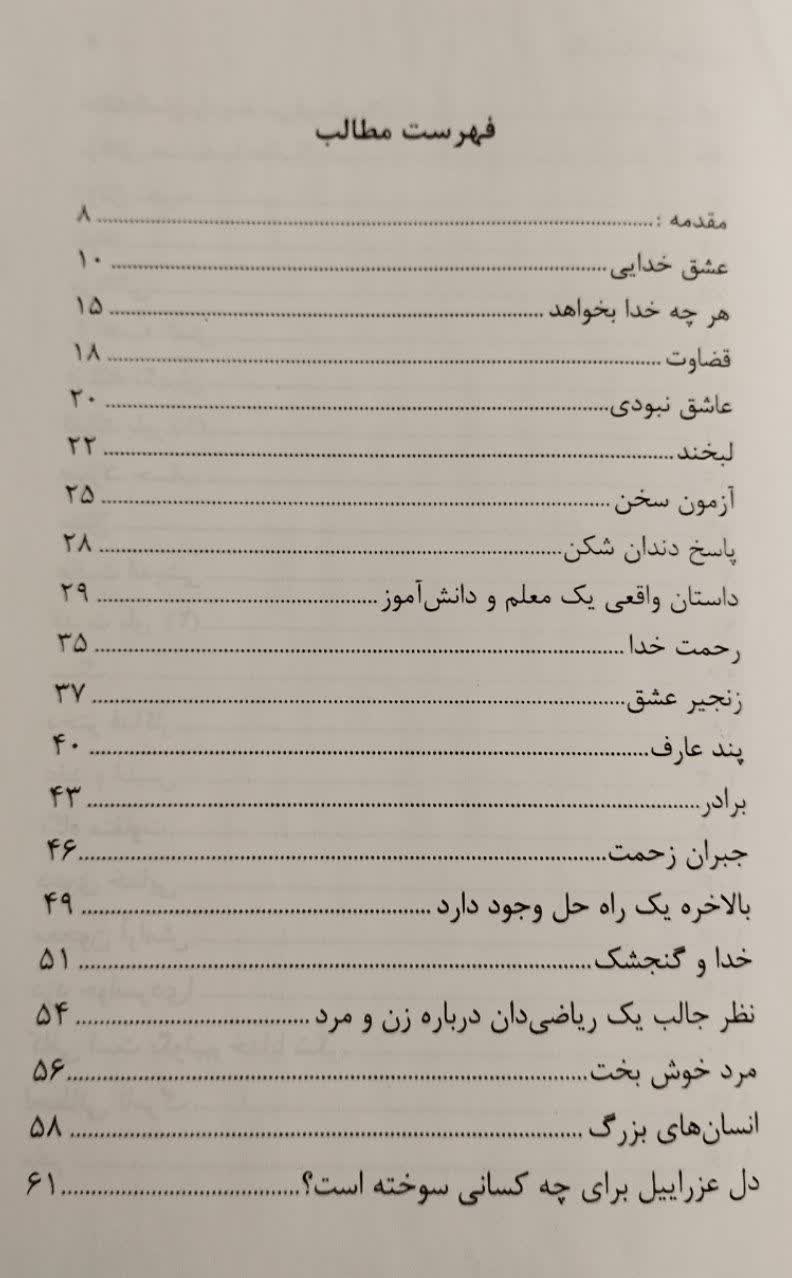 فهرست مطالب
مقدمه : ........................ ۸
عشق خدایی ........................ ۱۰
هر چه خدا بخواهد ........................ ۱۵
قضاوت ........................ ۱۸
عاشق نبودی ........................ ۲۰
لبخند ........................ ۲۲
آزمون سخن ........................ ۲۵
پاسخ دندان شکن ........................ ۲۸
داستان واقعی یک معلم و دانش‌آموز ........................ ۲۹
رحمت خدا ........................ ۳۵
زنجیر عشق ........................ ۳۷
پند عارف ........................ ۴۰
برادر ........................ ۴۳
جبران زحمت ........................ ۴۶
بالاخره یک راه حل وجود دارد ........................ ۴۹
خدا و گنجشک ........................ ۵۱
نظر جالب یک ریاضی‌دان درباره زن و مرد ........................ ۵۴
مرد خوش بخت ........................ ۵۶
انسان‌های بزرگ ........................ ۵۸
دل عزراییل برای چه کسانی سوخته است؟ ........................ ۶۱